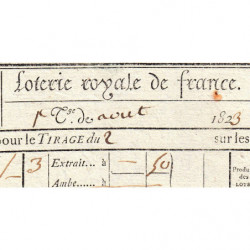 Loterie royale de france.
1 Tge. de aout 1823
pour le TIRAGE du 2 sur les
3 Extrait.... à — 50
Ambe.....
Produ
des